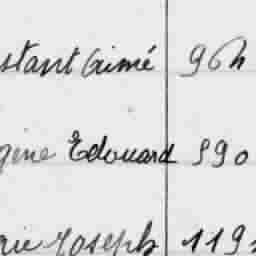 stant Aimé 964
gène Edouard 990
rie Joseph 119